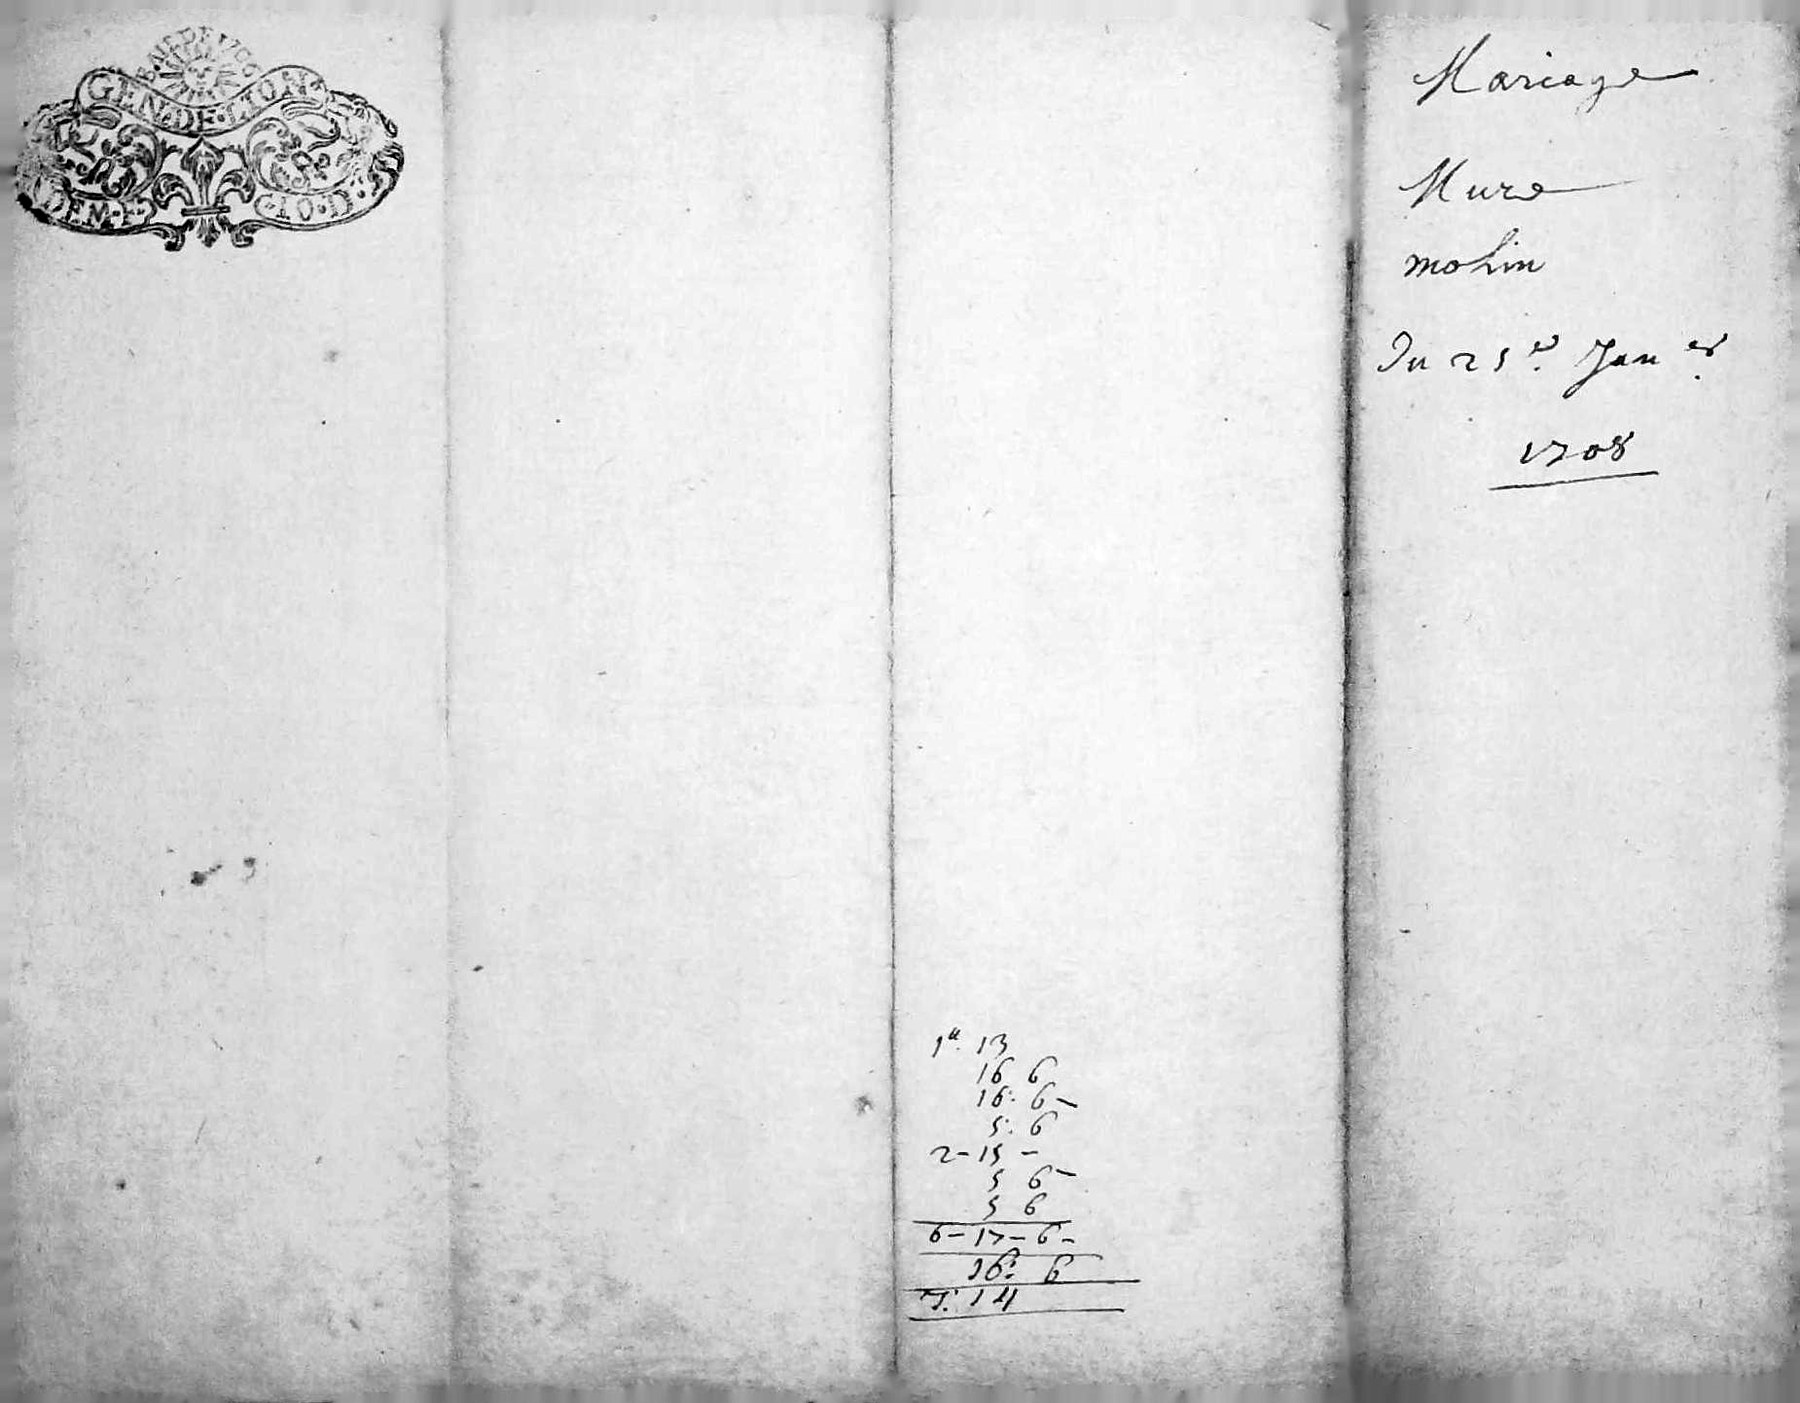 GEN·DE·LYON·
DEM·F·
·10·D·
Mariage
Mure
mohin
Du 25e Janer
1708
1tt 13
16 6
16: 6 -
5: 6
2 - 15 -
5 6 -
5 6
6 - 17 - 6 -
16: 6
7: 14